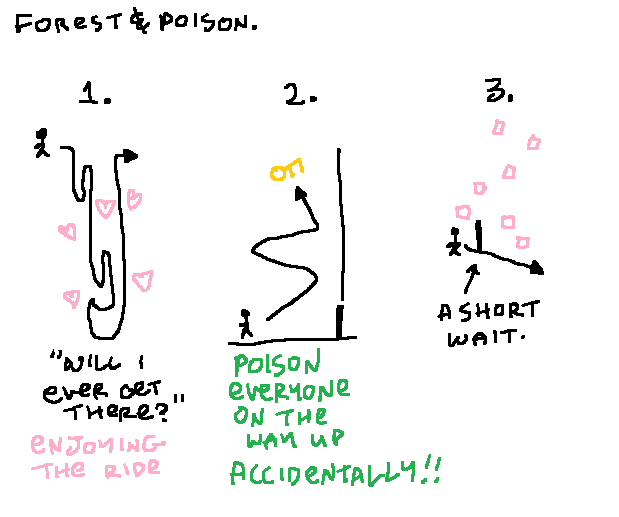 FOREST & POISON.
1.
2.
3.
"WILL I
EVER GET
THERE?"
ENJOYING
THE RIDE
POISON
EVERYONE
ON THE
WAY UP
ACCIDENTALLY!!
A SHORT
WAIT.